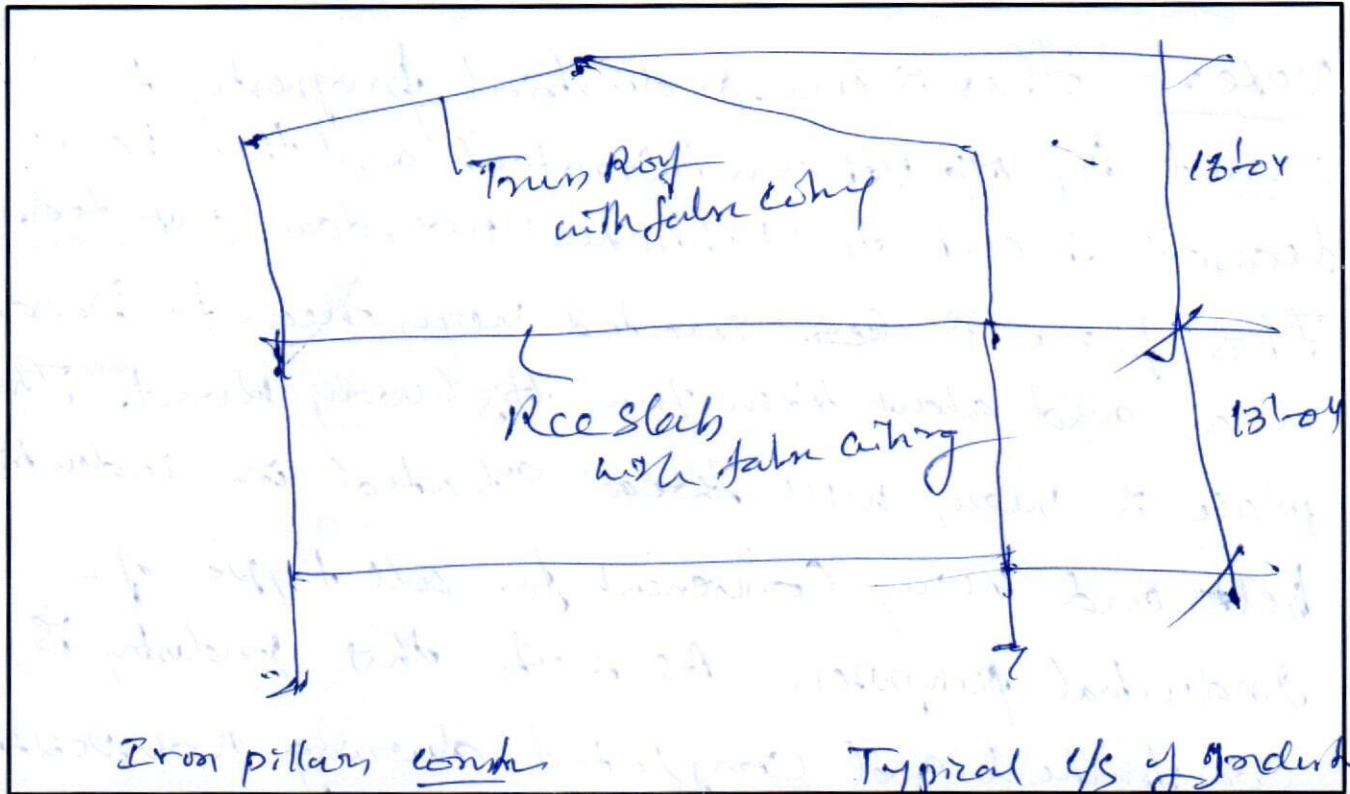 Truss Roof
with false ceiling
13'-0"
Rcc Slab
with false ceiling
13'-0"
Iron pillars constn
Typical c/s of Indust